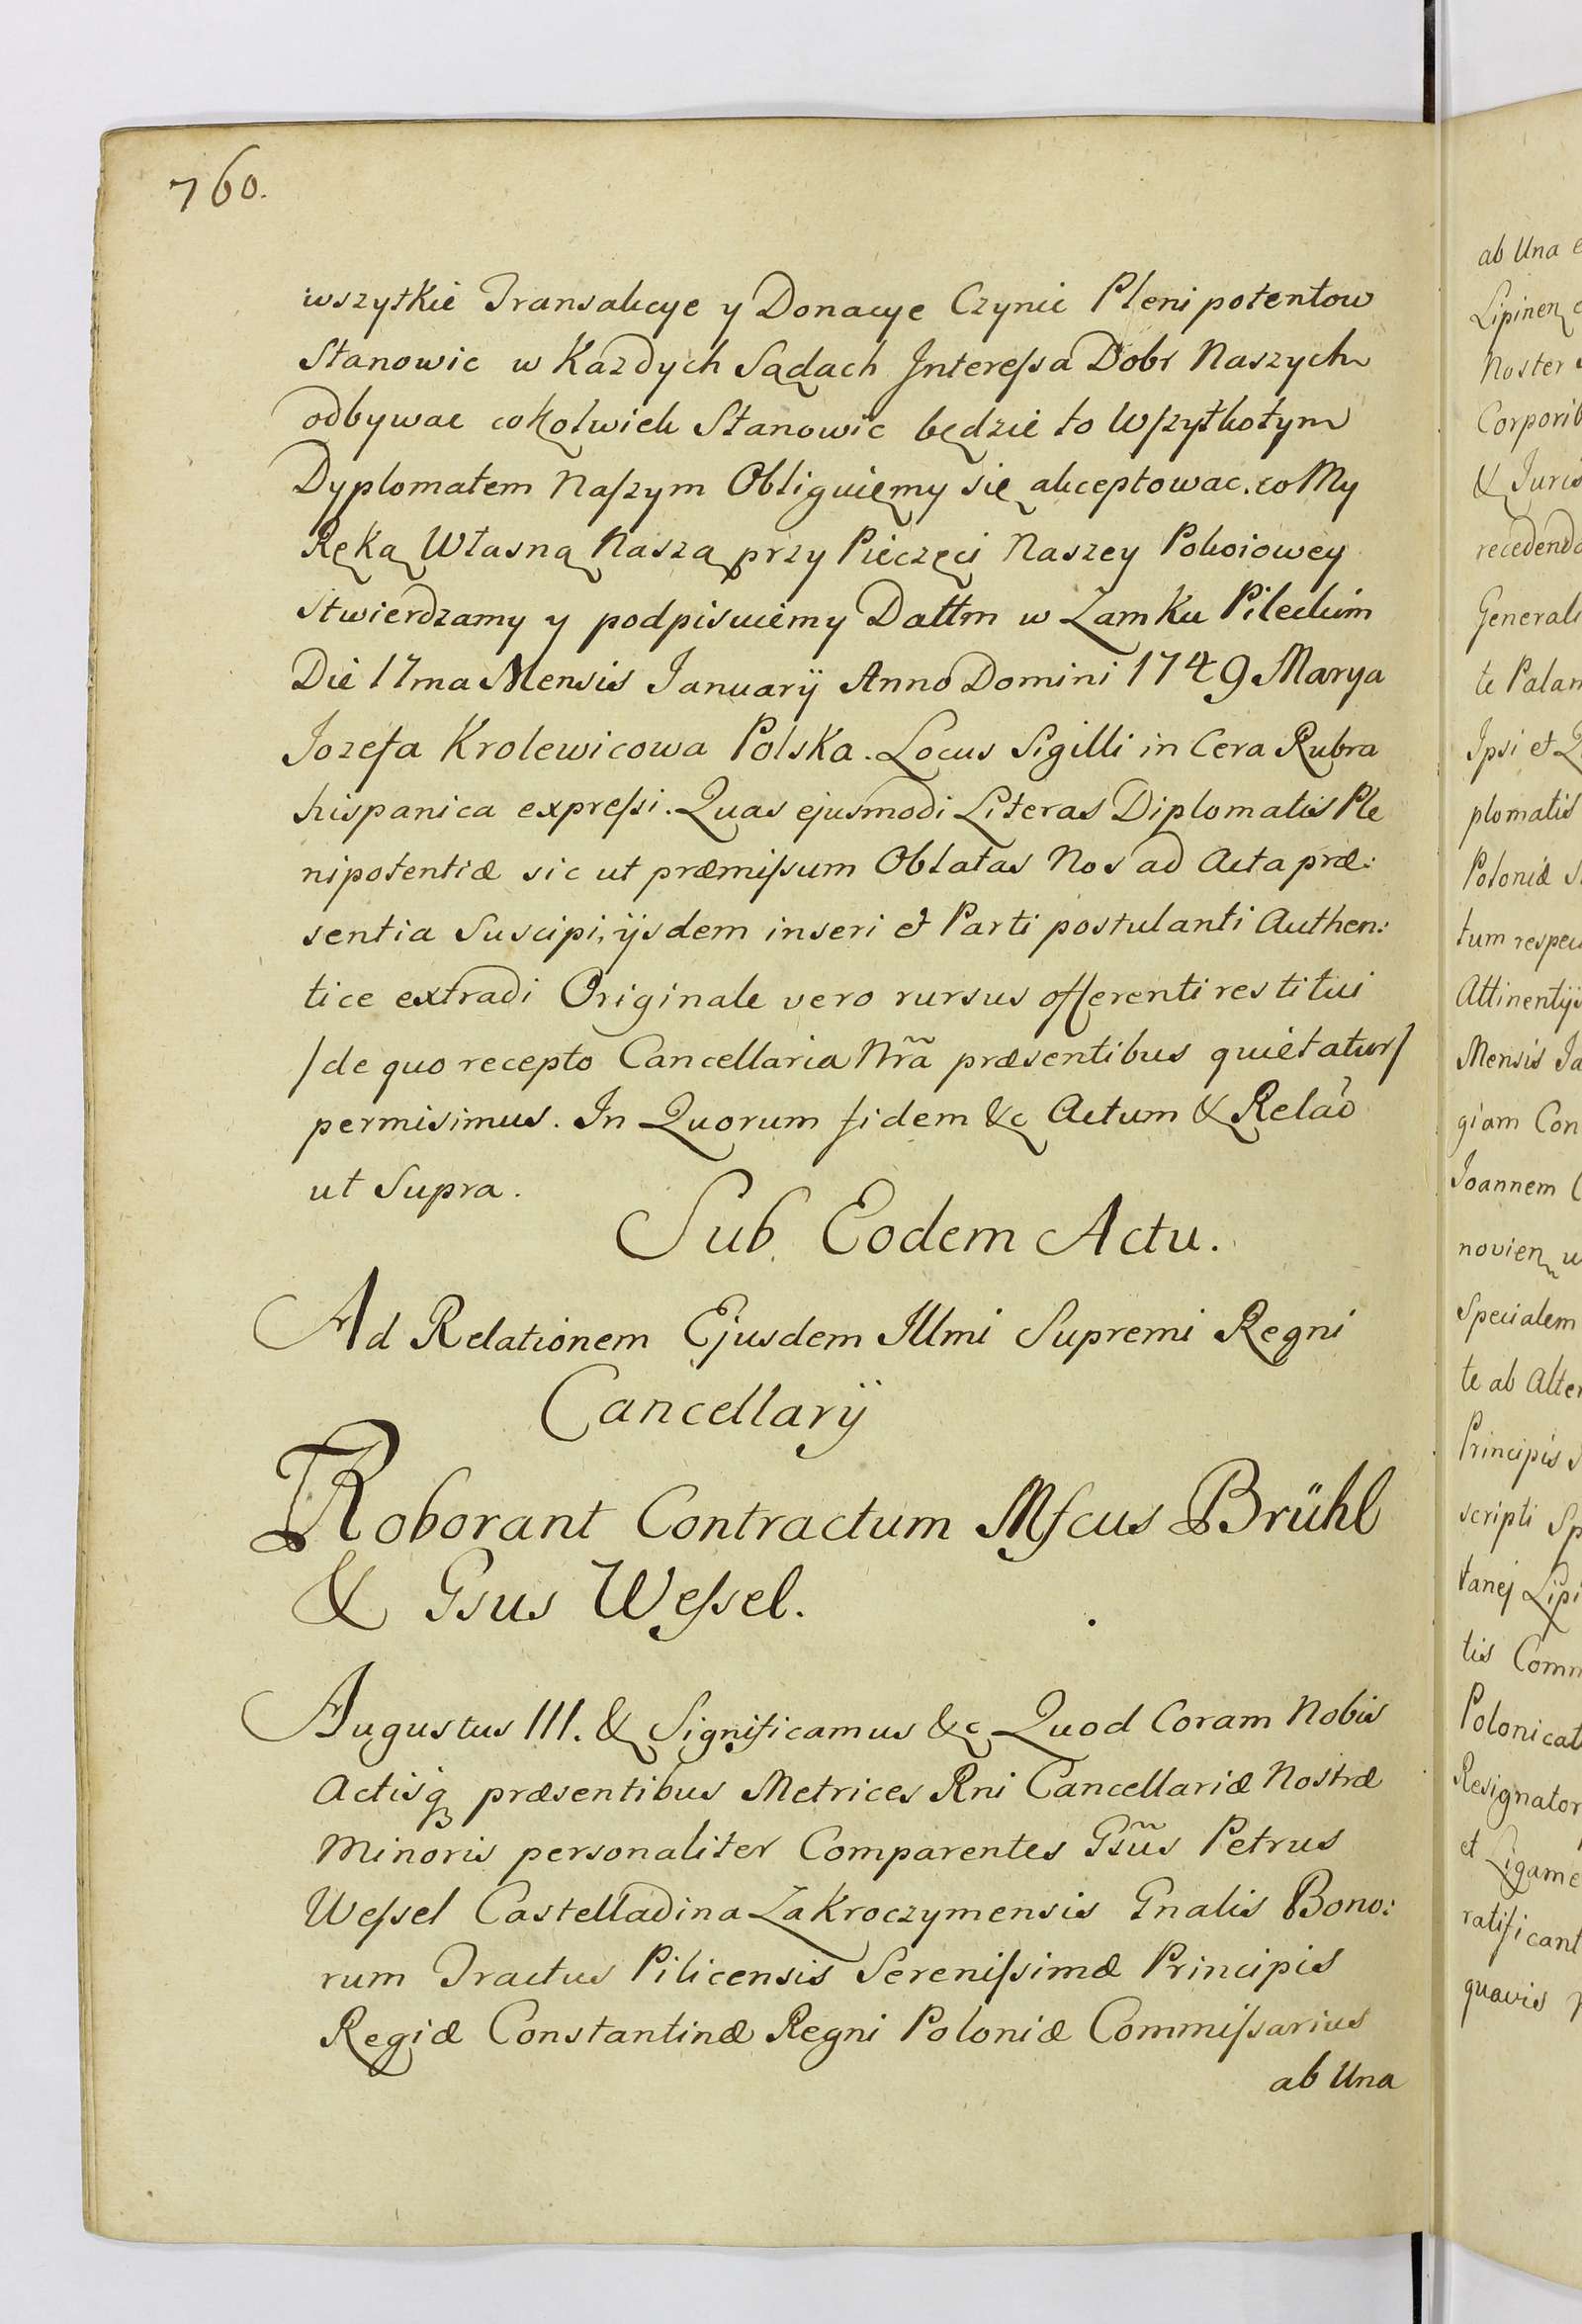 760.
wszytkie Transakcye y Donacye Czynic Plenipotentow
Stanowic w Kazdych Sądach Interessa Dobr Naszych
odbywac cokolwiek Stanowic będzie to Wszytkotym
Dyplomatem Naszym Obliguięmy się akceptowac. co My
Ręką Własną Naszą przy Pieczęci Naszey Pokoiowey
Stwierdzamy y podpisuiemy Dattm w Zamku Pileckim
Die 17ma Mensis Januarij Anno Domini 1749 Marya
Jozefa Krolewicowa Polska. Locus Sigilli in Cera Rubra
hispanica expressi. Quas ejusmodi Literas Diplomatis Ple
nipotentiæ sic ut præmissum Oblatas Nos ad Acta præ:
sentia Suscipi, ijsdem inseri et Parti postulanti Authen:
tice extradi Originale vero rursus offerenti restitui
/de quo recepto Cancellaria Nrã præsentibus quietatur/
permisimus. In Quorum fidem &c Actum & Relaõ
ut Supra.
Sub Eodem Actu.
Ad Relationem Ejusdem Illmi Supremi Regni
Cancellarij
Roborant Contractum Mfcus Brühl
& Gsus Wessel.
Augustus III. & Significamus &c Quod Coram Nobis
Actisq præsentibus Metrices Rni Cancellariæ Nostræ
Minoris personaliter Comparentes Gsũs Petrus
Wessel Castelladina Zakroczymensis Gnalis Bono:
rum Tractus Pilicensis Serenissimæ Principis
Regiæ Constantinæ Regni Poloniæ Commissarius
ab Una
ab Una
Lipinen
Noster
Corporib
& Juris
recedendo
Generali
te Palam
Ipsi et
plomatis
Poloniæ
tum respec
Attinentijs
Mensis Ja
giam Con
Joannem
novien
Specialem
te ab Alter
Principis
scripti Sp
tanej Lipi
tis Comm
Polonicat
Resignator
et Ligame
ratificant
quavis